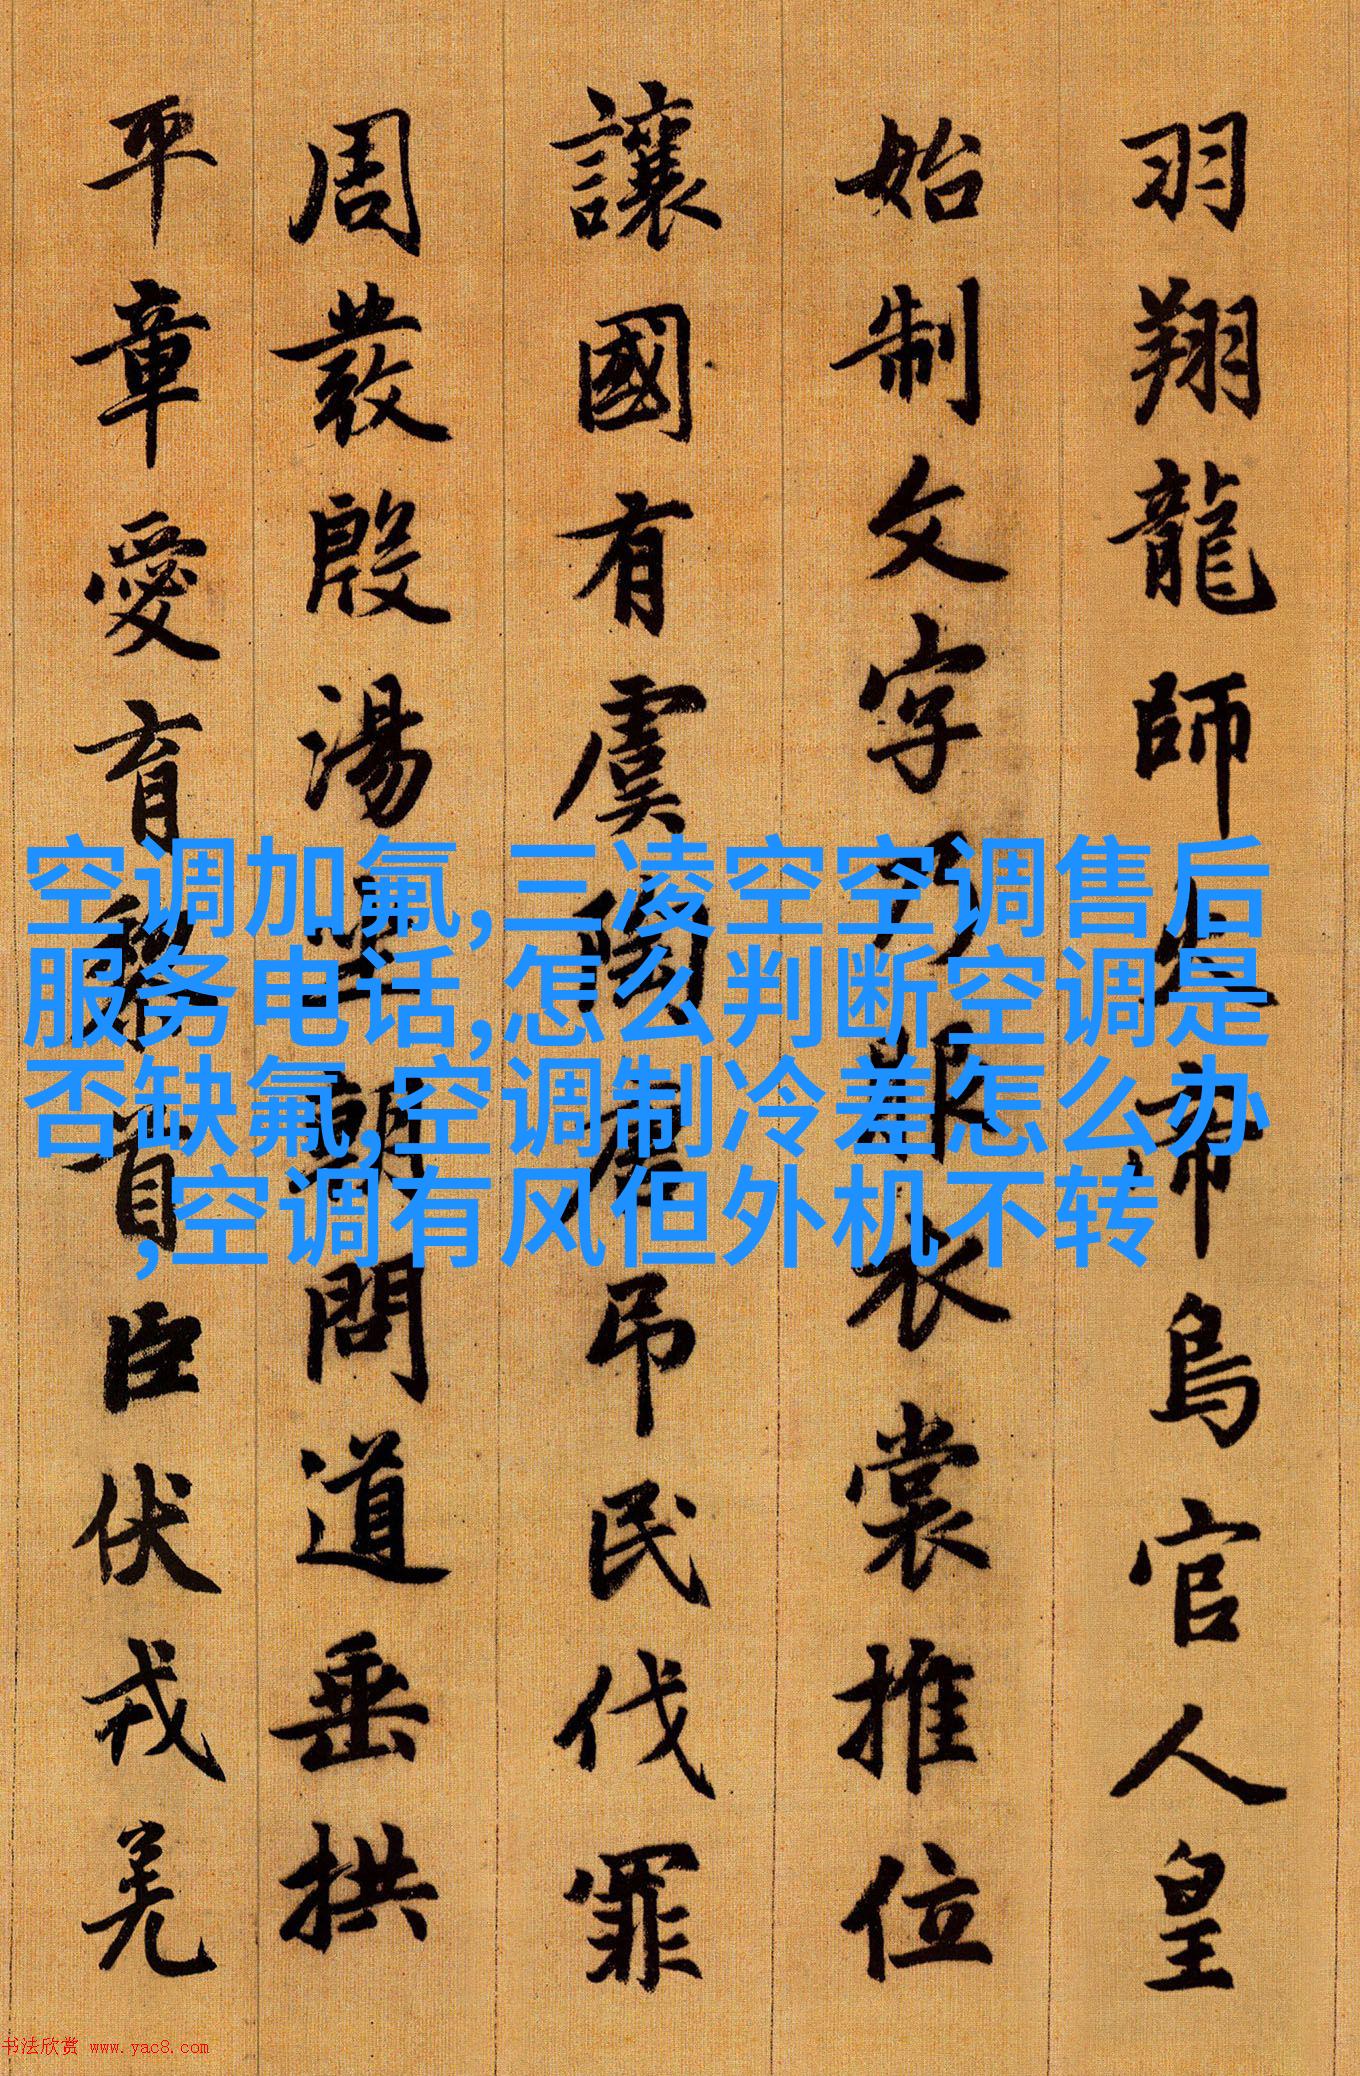 羽翔龍師火帝鳥官人皇
始制文字乃服衣裳推位
讓國有虞陶唐吊民伐罪
周發殷湯坐朝問道垂拱
平章愛育黎首臣伏戎羌
空调加氟,三凌空空调售后
服务电话,怎么判断空调是
否缺氟,空调制冷差怎么办
,空调有风但外机不转
书法欣赏 www.yac8.com